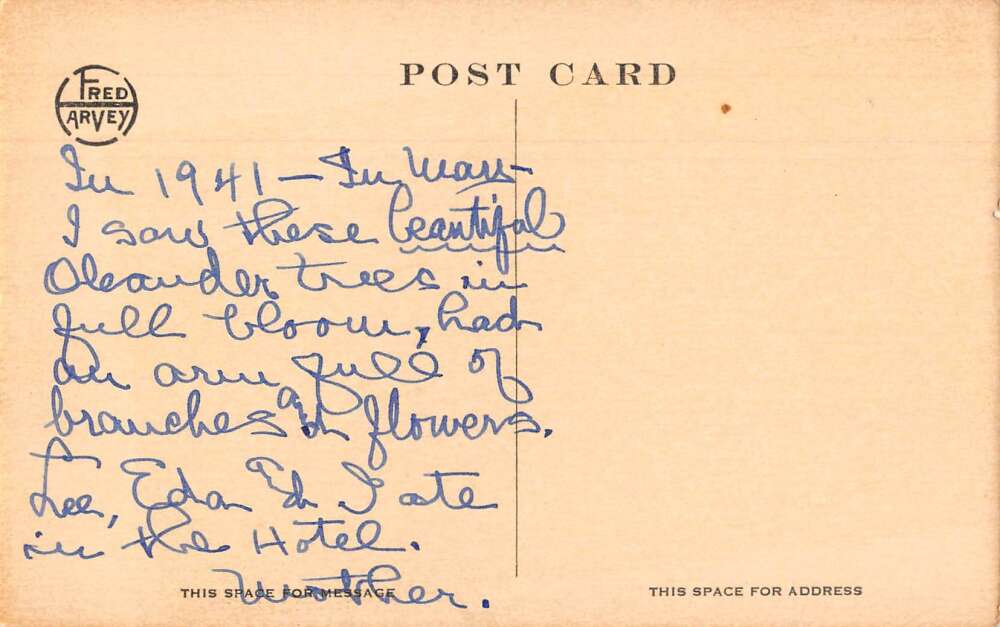 POST CARD
FRED HARVEY
In 1941 – In May –
I saw these beautiful
Oleander trees in
full bloom, had
an arm full of
branches and flowers.
Lee, Edna and I ate
in the Hotel.
Mother.
THIS SPACE FOR MESSAGE
THIS SPACE FOR ADDRESS